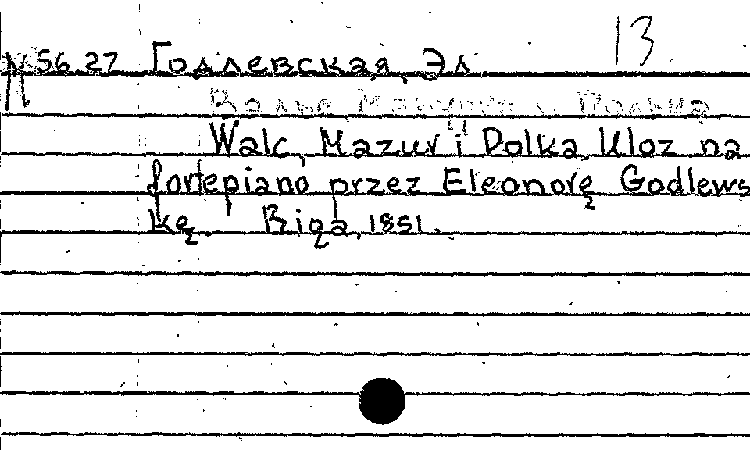 13
N 56.27 Годлевская, Эл
Вальс, Мазурка и Полька
Walc, Mazur i Polka. Uloz na
fortepiano przez Eleonorę Godlews
kę. Riga, 1851.